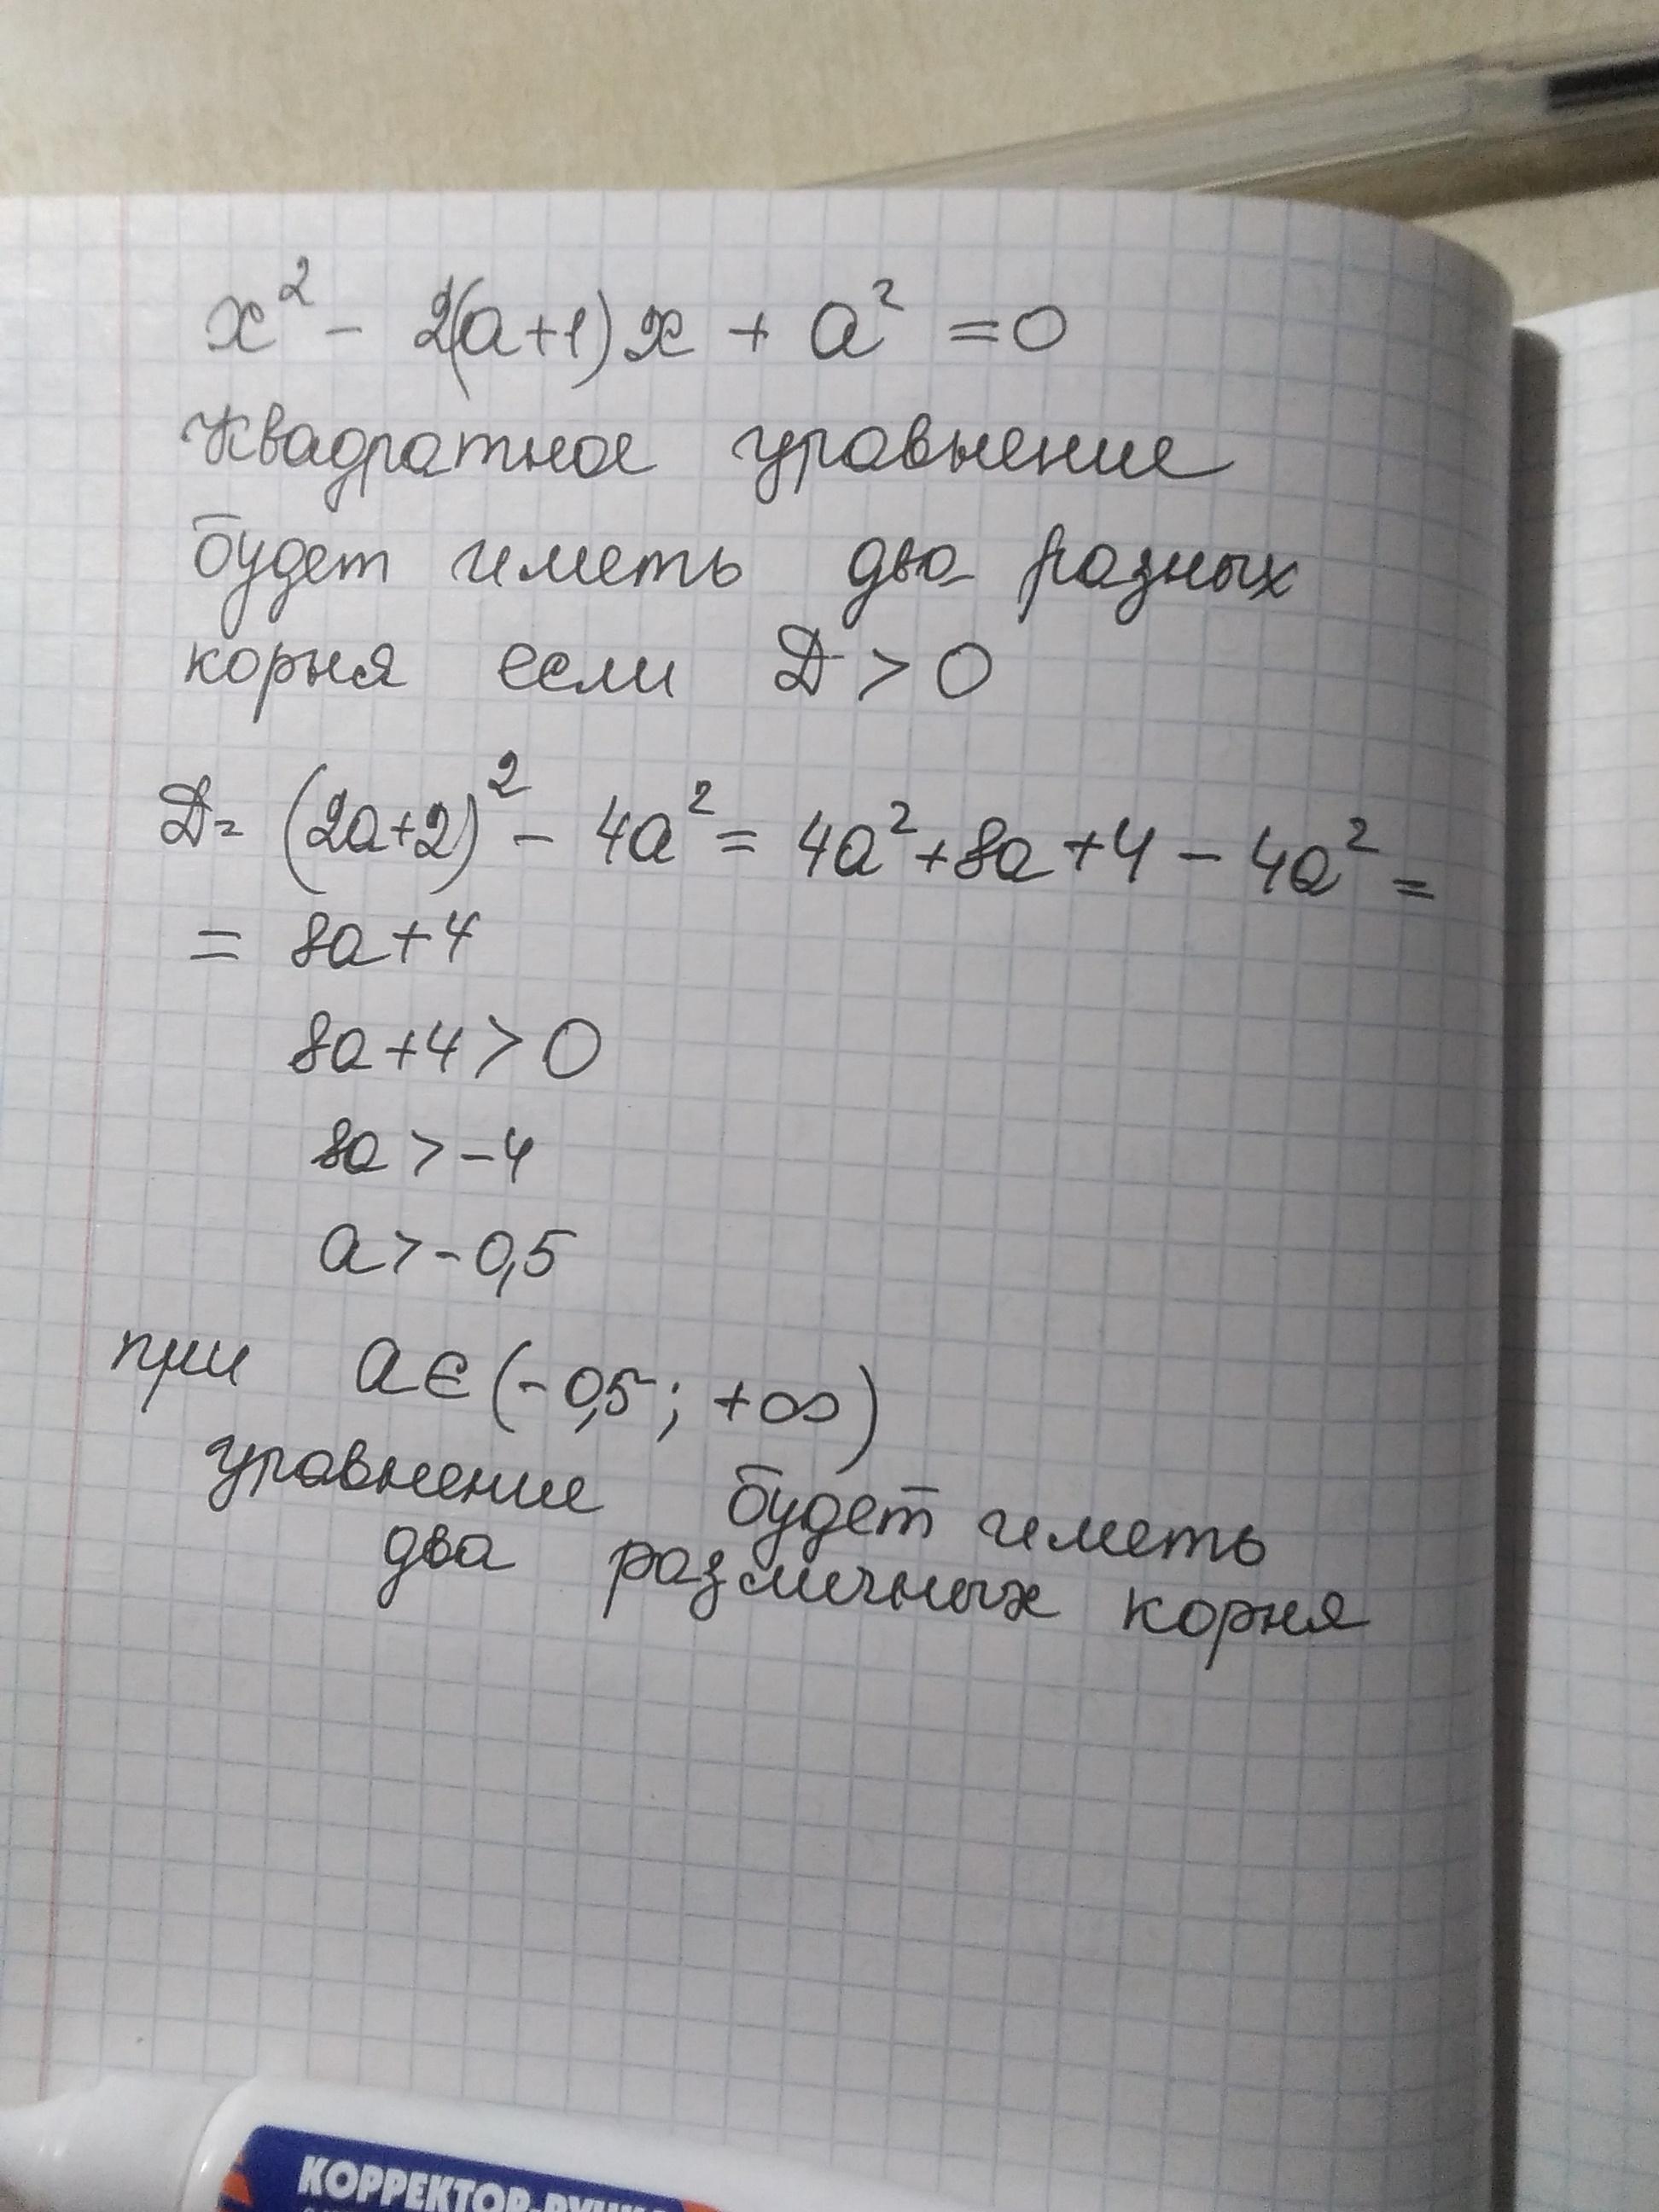 x² - 2(a+1)x + a² = 0
Квадратное уравнение
будет иметь два разных
корня если D > 0
D = (2a+2)² - 4a² = 4a² + 8a + 4 - 4a² =
= 8a + 4
8a + 4 > 0
8a > -4
a > -0,5
при a ∈ (-0,5; +∞)
уравнение будет иметь
два различных корня
КОРРЕКТОР-РУЧКА